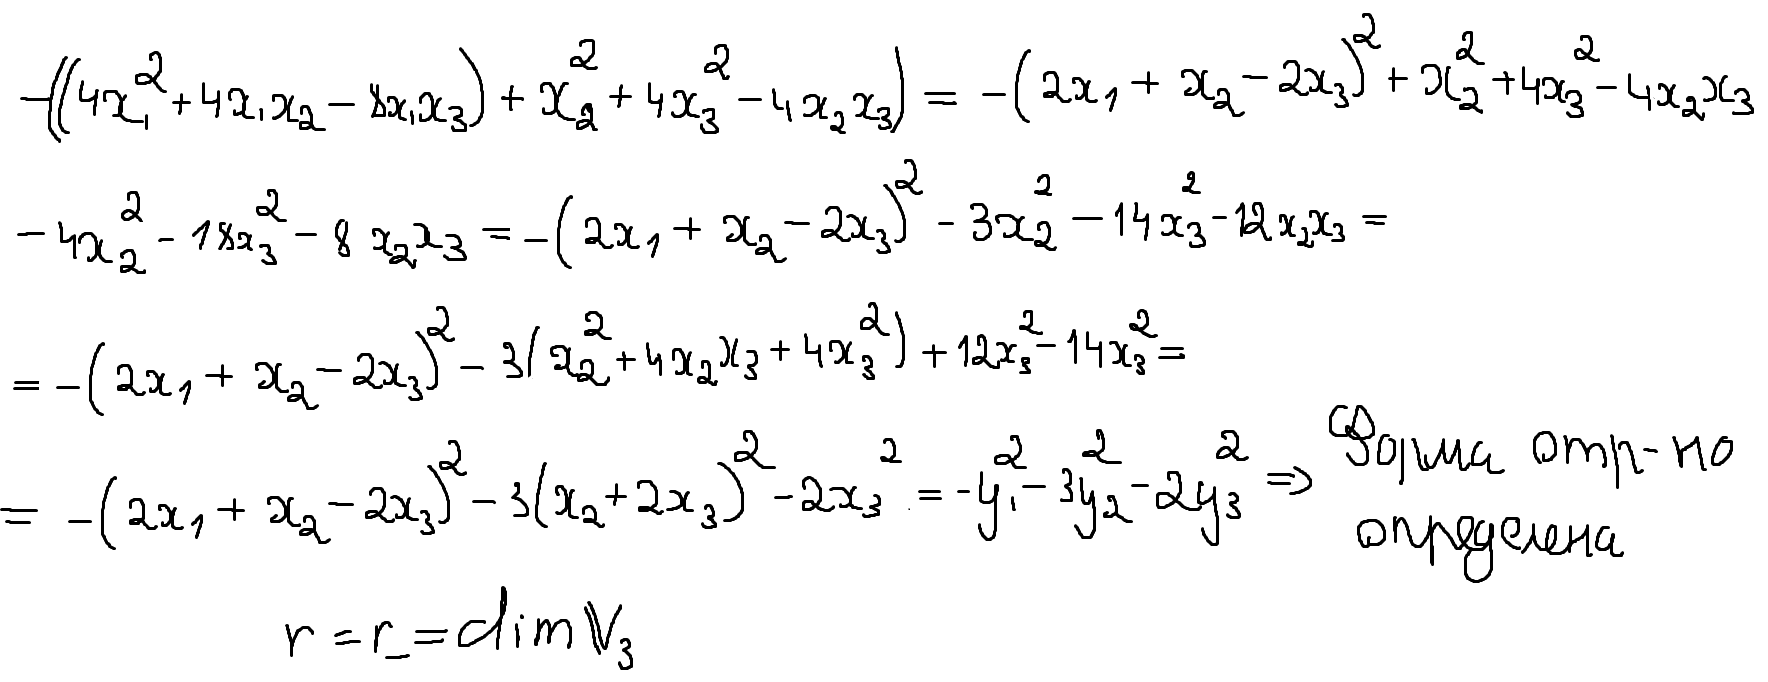 -((4x₁² + 4x₁x₂ - 8x₁x₃) + x₂² + 4x₃² - 4x₂x₃) = -(2x₁ + x₂ - 2x₃)² + x₂² + 4x₃² - 4x₂x₃
- 4x₂² - 18x₃² - 8 x₂x₃ = -(2x₁ + x₂ - 2x₃)² - 3x₂² - 14x₃² - 12x₂x₃ =
= -(2x₁ + x₂ - 2x₃)² - 3(x₂² + 4x₂x₃ + 4x₃²) + 12x₃² - 14x₃² =
= -(2x₁ + x₂ - 2x₃)² - 3(x₂ + 2x₃)² - 2x₃² = -y₁² - 3y₂² - 2y₃² ⇒ Форма отр-но
определена
r = r_ = dim V₃